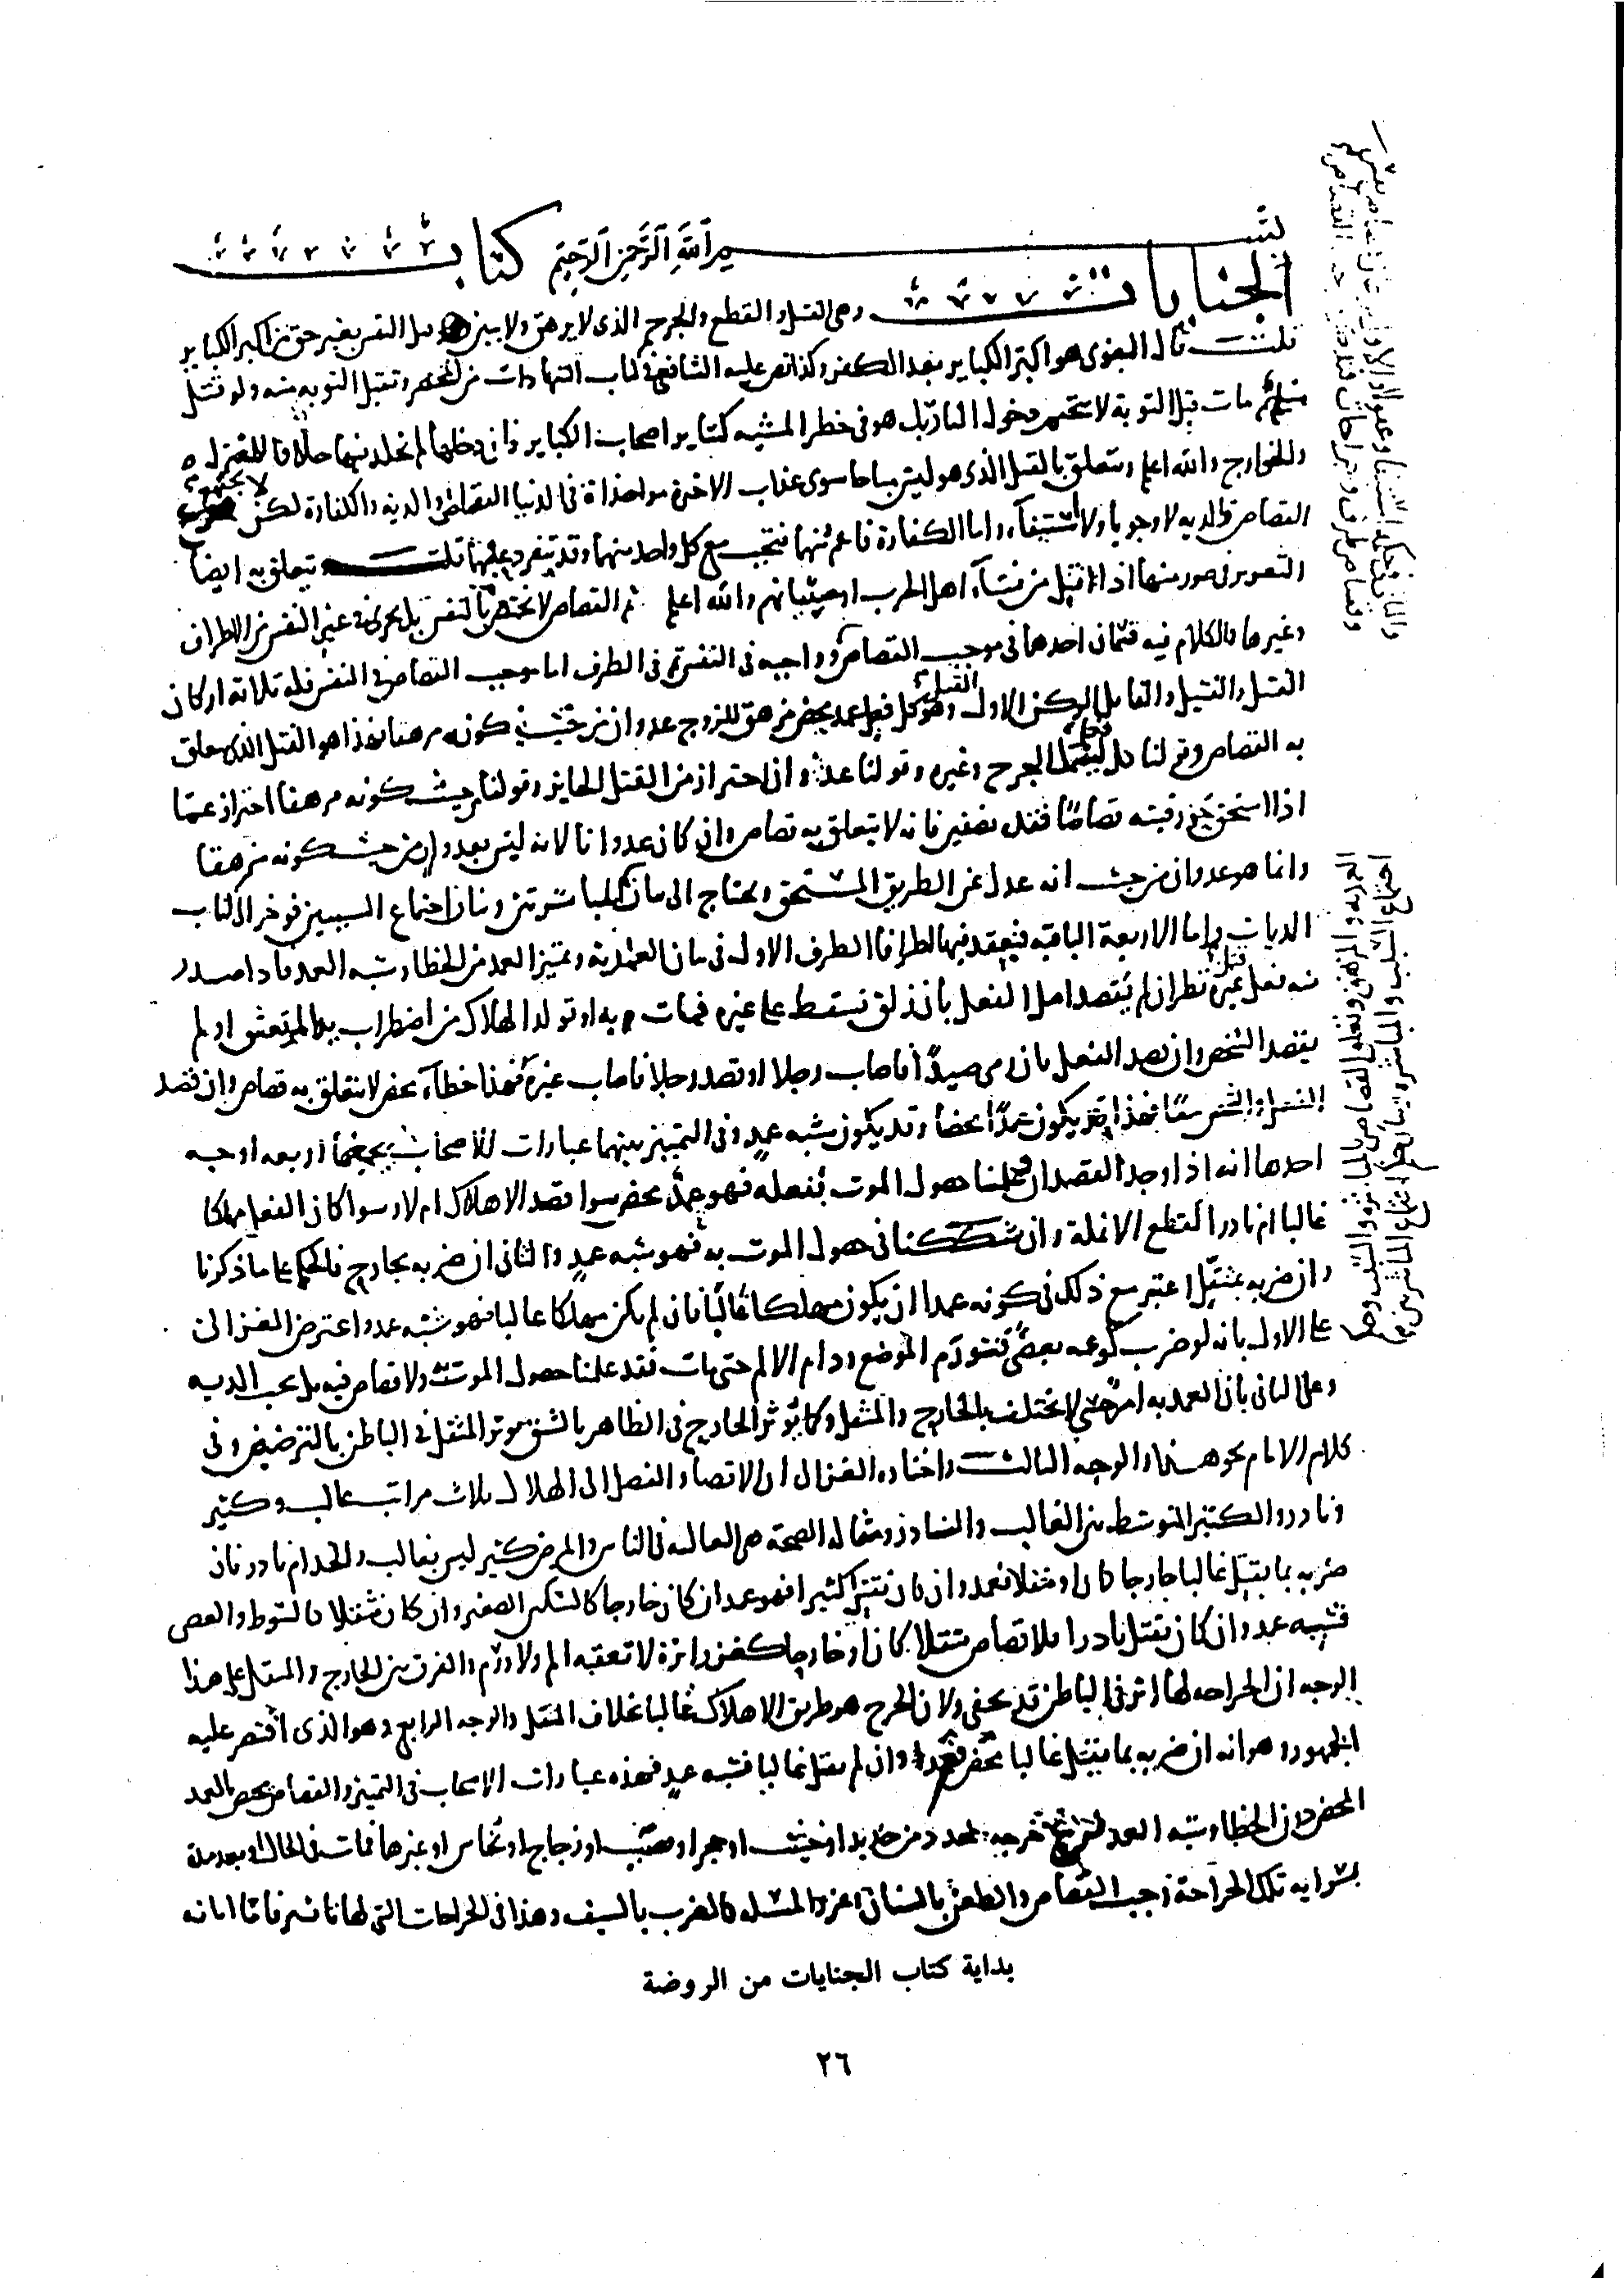 بسم الله الرحمن الرحيم كتاب
الجنايات وهي القتل والقطع والجرح الذي لا يزهق ولا يبين قتل النفس بغير حق من اكبر الكباير
قلت قال البغوي هو اكبر الكباير بعد الكفر وكذا نص عليه الشافعي في كتاب الشهادات من المختصر وتقبل التوبة منه ولو قتل
مسلم ثم مات قبل التوبة لا يتحتم دخول النار بل هو في خطر المشية كساير اصحاب الكباير فان دخلها لم يخلد فيها خلافا للمعتزلة
والخوارج والله اعلم ويتعلق بالقتل الذي هو ليس مباحا سوى عذاب الاخرة مواخذاة في الدنيا القصاص والدية والكفارة لكن لا يجتمع
القصاص والدية لا وجوبا ولا استيفآء واما الكفارة فاعم منهما فتجب مع كل واحد منهما وقد تنفرد عنهما قلت ويتعلق به ايضا
التعزير في صور منها اذا قتل من نسآء اهل الحرب او صبيانهم والله اعلم ثم القصاص لا يختص بالنفس بل يجري في غير النفس من الاطراف
وغيرها والكلام فيه قسمان احدهما في موجب القصاص وواجبه في النفس ثم في الطرف اما موجب القصاص في النفس فله ثلاثة اركان
القتل والقتيل والقاتل الركن الاول القتل وهو كل فعل عمد محض مزهق للروح عدوان من حيث كونه مزهقا فهذا هو القتل الذي يتعلق
به القصاص وقولنا كل فعل ليشمل الجرح وغيره وقولنا عدوان احتراز من القتل الجايز وقولنا من حيث كونه مزهقا احتراز عما
اذا استحق حز رقبته قصاصا فقده نصفين فانه لا يتعلق به قصاص وان كان عدوانا لانه ليس بعدوان من حيث كونه مزهقا
وانما هو عدوان من حيث انه عدل عن الطريق المستحق ويحتاج الى بيان المباشرتين وبيان اجتماع السببين فموخر الى كتاب
الديات واما الاربعة الباقية فينعقد فيها اطراف الطرف الاول في بيان العمدية وتمييز العمد من الخطا وشبه العمد فاذا صدر
منه فعل قتل غيره نظر ان لم يقصد اصل الفعل بان زلق فسقط على غيره فمات به او تولد الهلاك من اضطراب يد المرتعش او لم
يقصد الشخص وان قصد الفعل بان رمى صيدا فاصاب رجلا او قصد رجلا فاصاب غيره فهذا خطآء محض لا يتعلق به قصاص وان قصد
الفعل والشخص معا فهذا قد يكون عمدا محضا وقد يكون شبه عمد وفي التمييز بينهما عبارات للاصحاب يجمعها اربعة اوجه
احدها انه اذا وجد القصدان وعلمنا حصول الموت بفعله فهو عمد محض سوا قصد الاهلاك ام لا وسوا كان الفعل مهلكا
غالبا ام نادرا كقطع الانملة وان شككنا في حصول الموت به فهو شبه عمد والثاني ان ضربه بجارح فالحكم على ما ذكرنا
وان ضربه بمثقل اعتبر مع ذلك في كونه عمدا ان يكون مهلكا غالبا فان لم يكن مهلكا غالبا فهو شبه عمد واعترض الغزالي
على الاول بانه لو ضرب كوعه بعصى فتورم الموضع ودام الالم حتى مات فقد علمنا حصول الموت ولا قصاص فيه بل تجب الدية
وعلى الثاني بان العمدية امر حسي لا يختلف بالجارح والمثقل وكما يوثر الجارح في الظاهر بالشق يوثر المثقل في الباطن بالترضيض وفي
كلام الامام نحو هذا والوجه الثالث واختاره الغزالي ان الافضاء الفعل الى الهلاك ثلاث مراتب غالب وكثير
ونادر والكثير المتوسط بين الغالب والنادر ومثاله الصحة هي الغالبة في الناس والمرض كثير ليس بغالب والجذام نادر فان
ضربه بما يقتل غالبا جارحا كان او مثقلا فعمد وان كان يقتل كثيرا فهو عمد ان كان جارحا كالسكين الصغير وان كان مثقلا كالسوط والعصى
فشبه عمد وان كان يقتل نادرا فلا قصاص مثقلا كان او جارحا كغرز ابرة لا تعقبه الم ولا ورم والفرق بين الجارح والمثقل على هذا
الوجه ان الجراحة لها اثر في الباطن قد يخفى ولان الجرح هو طريق الاهلاك غالبا بخلاف المثقل والوجه الرابع وهو الذي اقتصر عليه
الجمهور وهو انه ان ضربه بما يقتل غالبا فعمد محض وان لم يقتل غالبا فشبه عمد فهذه عبارات الاصحاب في التمييز والقصاص يختص بالعمد
المحض دون الخطا وشبه العمد فرع جرحه بمحدد من حديد او خشب او حجر او قصب او زجاج او نحاس او غيرها فمات في الحال او بعد مدة
بسراية تلك الجراحة وجب القصاص والطعن بالسنان وغرز المسلة كالضرب بالسيف وهذا في الجراحات التي لها تاثير فاما ابانة
بداية كتاب الجنايات من الروضة
٢٦